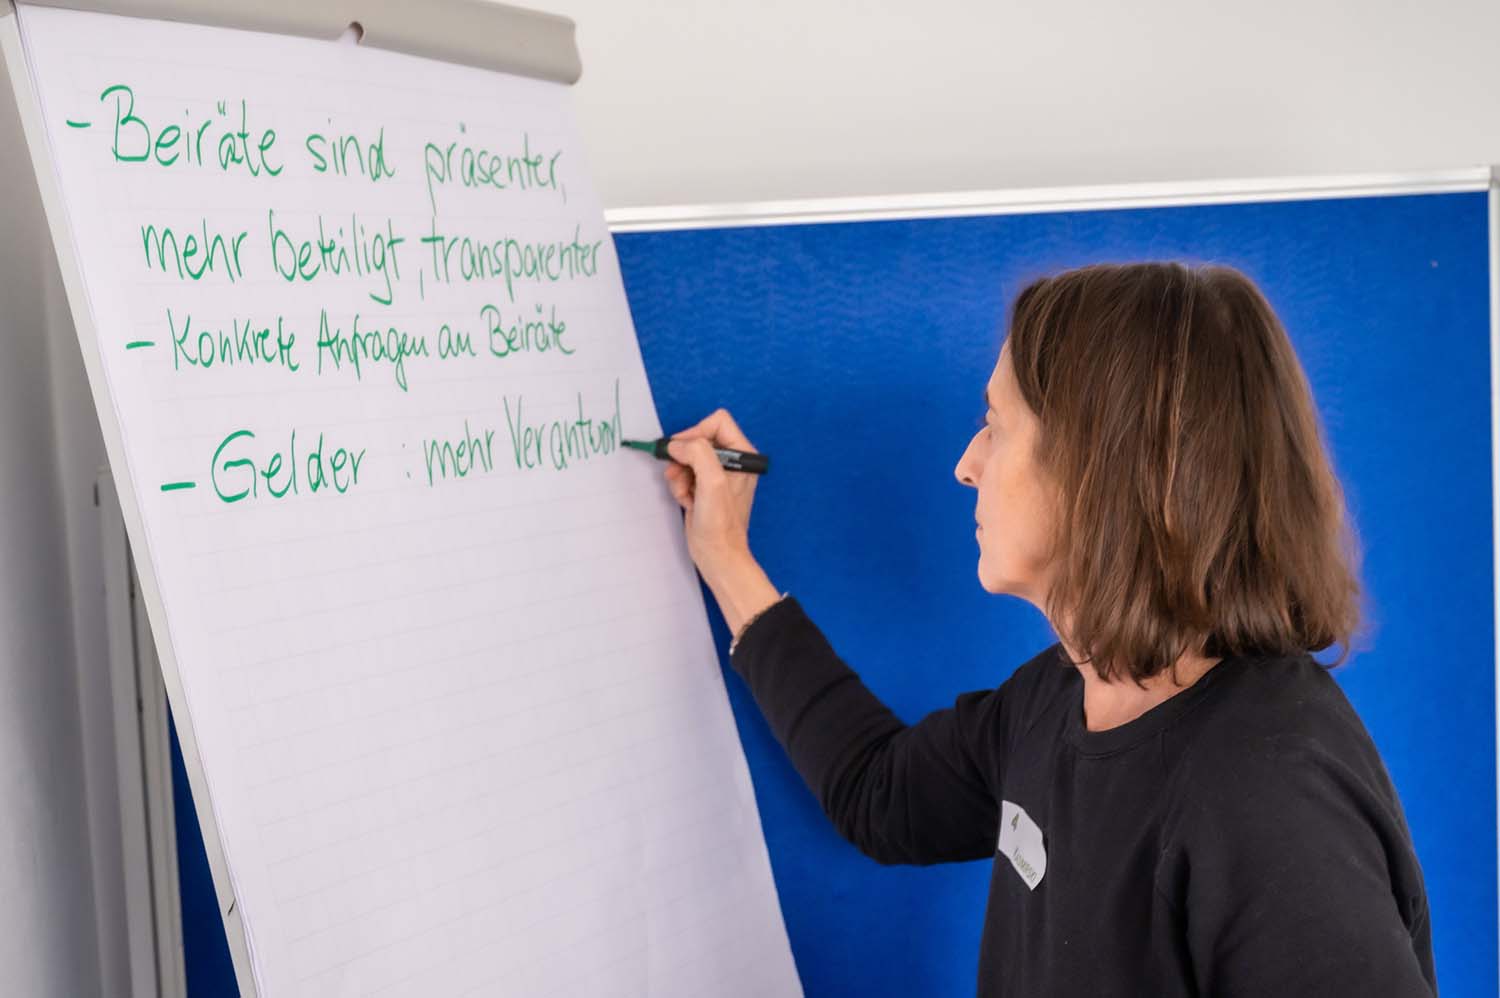 - Beiräte sind präsenter,
mehr beteiligt, transparenter
- Konkrete Anfragen an Beiräte
- Gelder : mehr Verantwort
4